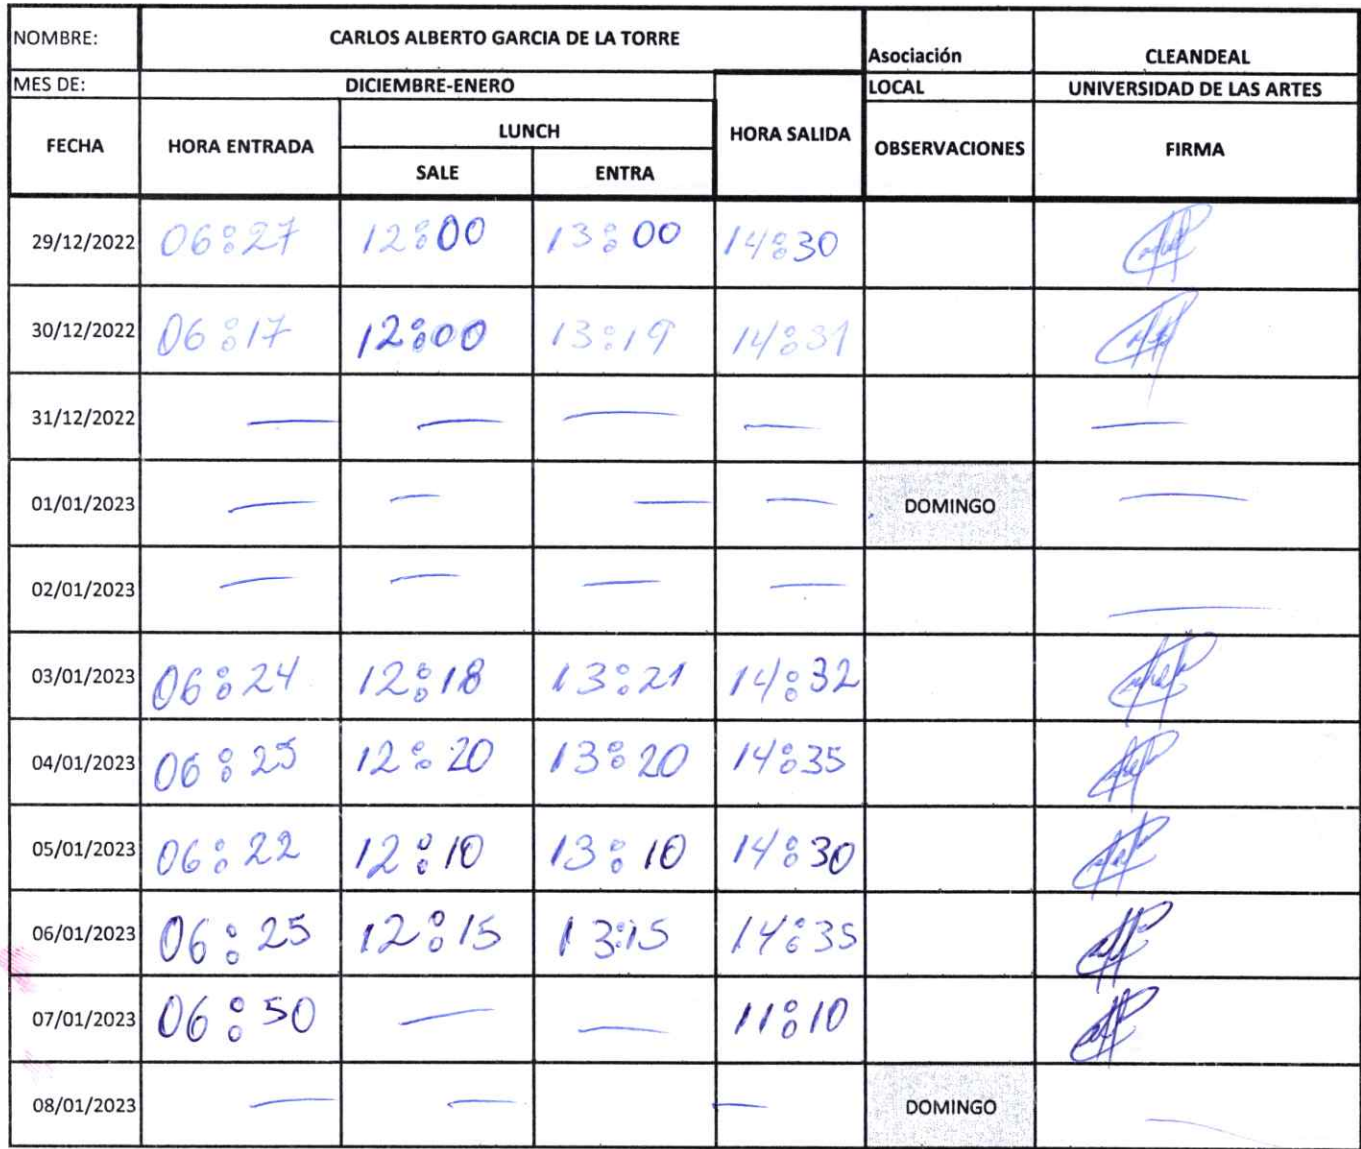 NOMBRE: CARLOS ALBERTO GARCIA DE LA TORRE Asociación CLEANDEAL
MES DE: DICIEMBRE-ENERO LOCAL UNIVERSIDAD DE LAS ARTES
FECHA HORA ENTRADA LUNCH HORA SALIDA OBSERVACIONES FIRMA
SALE ENTRA
29/12/2022 06:27 12:00 13:00 14:30
30/12/2022 06:17 12:00 13:19 14:31
31/12/2022 — — — — —
01/01/2023 — — — — DOMINGO —
02/01/2023 — — — — —
03/01/2023 06:24 12:18 13:21 14:32
04/01/2023 06:25 12:20 13:20 14:35
05/01/2023 06:22 12:10 13:10 14:30
06/01/2023 06:25 12:15 13:15 14:35
07/01/2023 06:50 — — 11:10
08/01/2023 — — — DOMINGO —